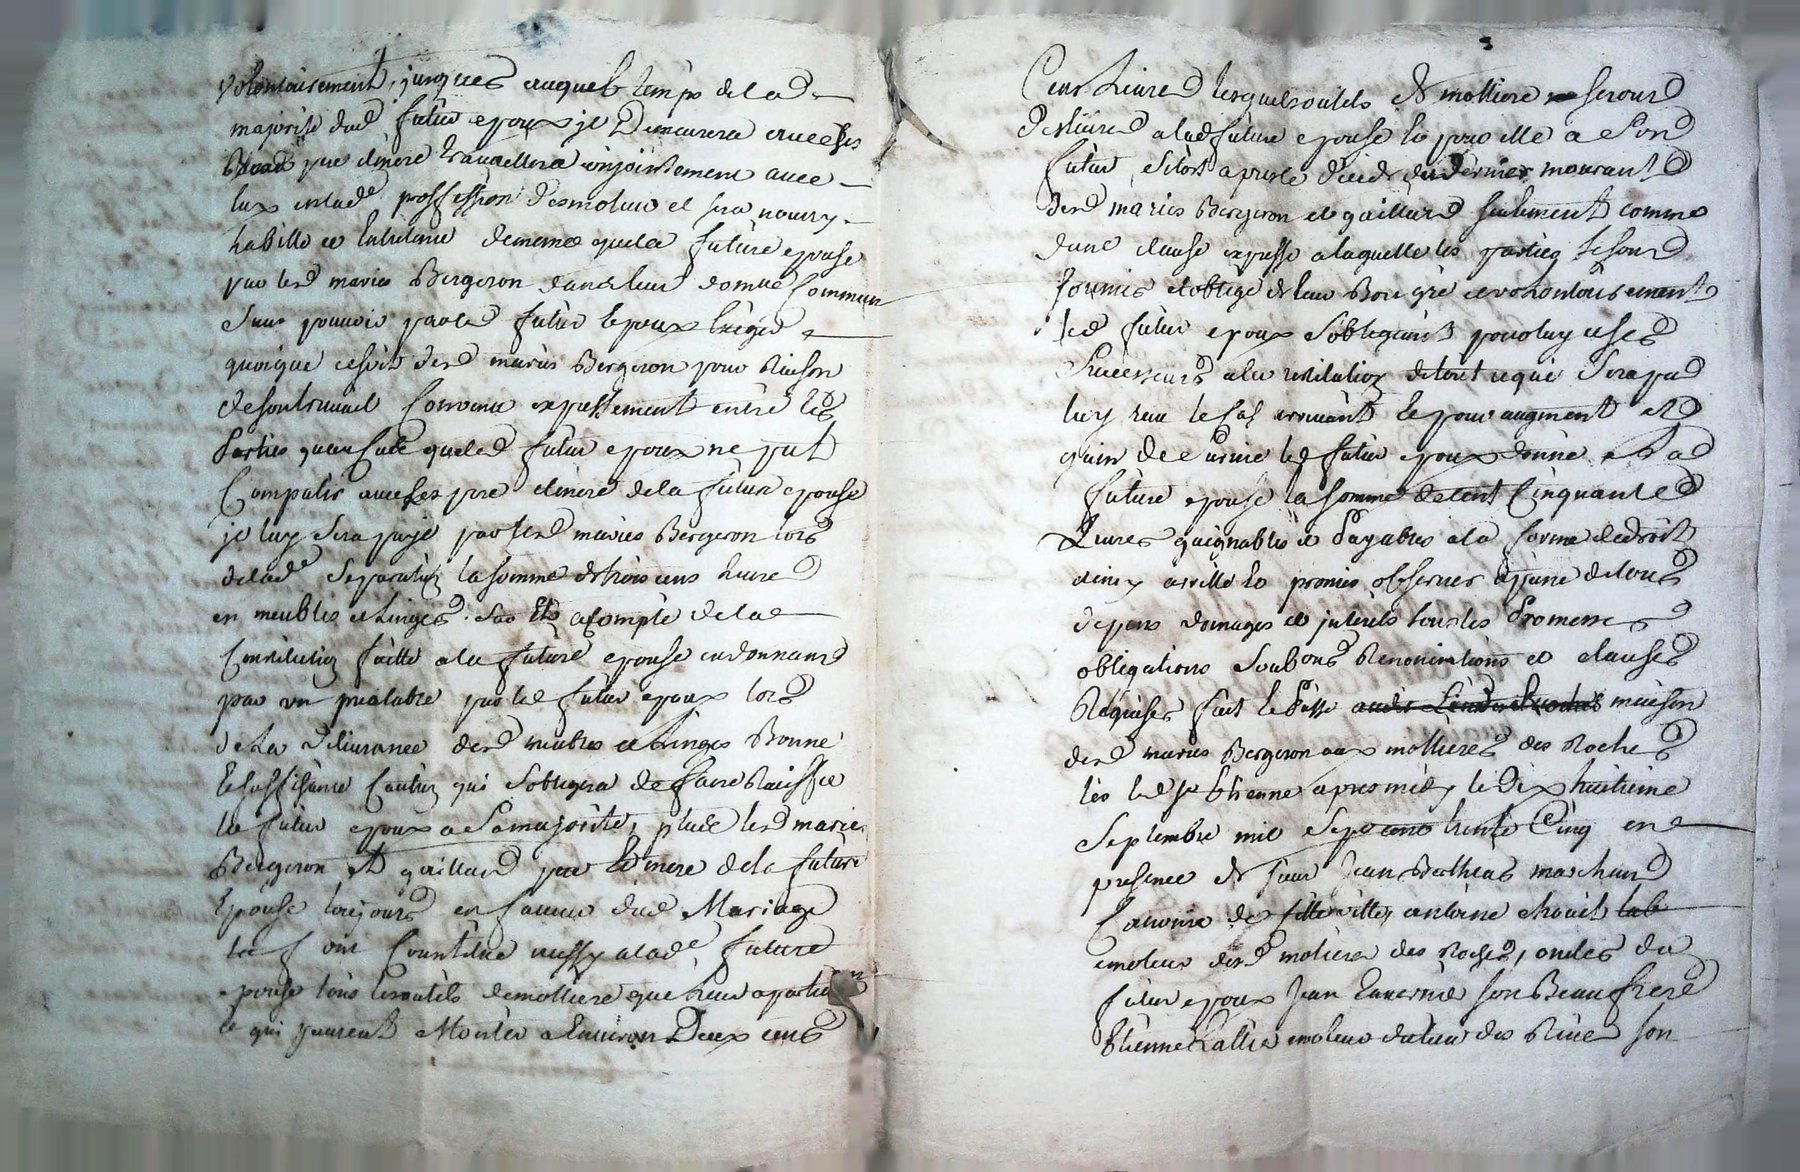 volontairement, jusques auquel temps de lad
majorité dud futur epoux il Demeurera avec ses
pere et mere travaillera conjointement avec
eux en lad.e proffession d'esmoleur et sera nourry
habillé et entretenu de meme que la future epouse
par lesd mariés Bergeron dans leur domicile Commun
sans pouvoir par led futur epoux exiger
quoique ce soit desd mariés Bergeron pour Raison
de son travail Convenu expressement entre les
Parties qu'en Cas que led futur epoux ne put
Compatir avec les pere et mere de la future epouse
il luy sera payé par lesd mariés Bergeron lors
de lad.e separation la somme de trois cens livres
en meubles et linges. a Compte de la
Constitution faitte a la future epouse en donnant
par un prealable par led futur epoux lors
de La Délivrance desd meubles et Linges Bonne
et suffisante Caution qui s'obligera de faire
le futur epoux a sa majorité, plus lesd mariés
Bergeron et gaillard pere et mere de la future
Epouse toujours en faveur dud Mariage
luy ont Constitué aussy a lad.e future
epouse tous les outils de molliere
ce qui peuvent Monter a Environ Deux cens
Cens Livres lesquels outils de molliere seront
Delivrés a lad future epouse
futur, sitost apres le deceds du dernier mourant
desd mariés Bergeron et gaillard seulement comme
dune clause expresse a laquelle les parties se sont
soumis et obligé de leur Bon gré et volontairement
led futur epoux s'obligeant pour luy et ses
Successeurs a la restitution de tout ce que sera par
luy reçu le Cas arrivant et pour augment et
gain de survie led futur epoux donne a lad
future epouse la somme de cent Cinquante
Livres gaignables et Payables a la forme de droit
ainsy arrêté et promis observer a peine de tous
depens domages et interets tous les Promesses
obligations Soubons Renonciations et clauses
Requises fait et Passé maison
desd mariés Bergeron aux mollieres des Roches
led St Etienne apres midy le Dix huitieme
Septembre mil Sept cent trente Cinq en
presence de sieur Jean Bathias marchand
antoine
emoleur desd molieres des Roches, oncles du
futur epoux Jean son Beaufrere
Etienne emoleur du lieu des Rives son